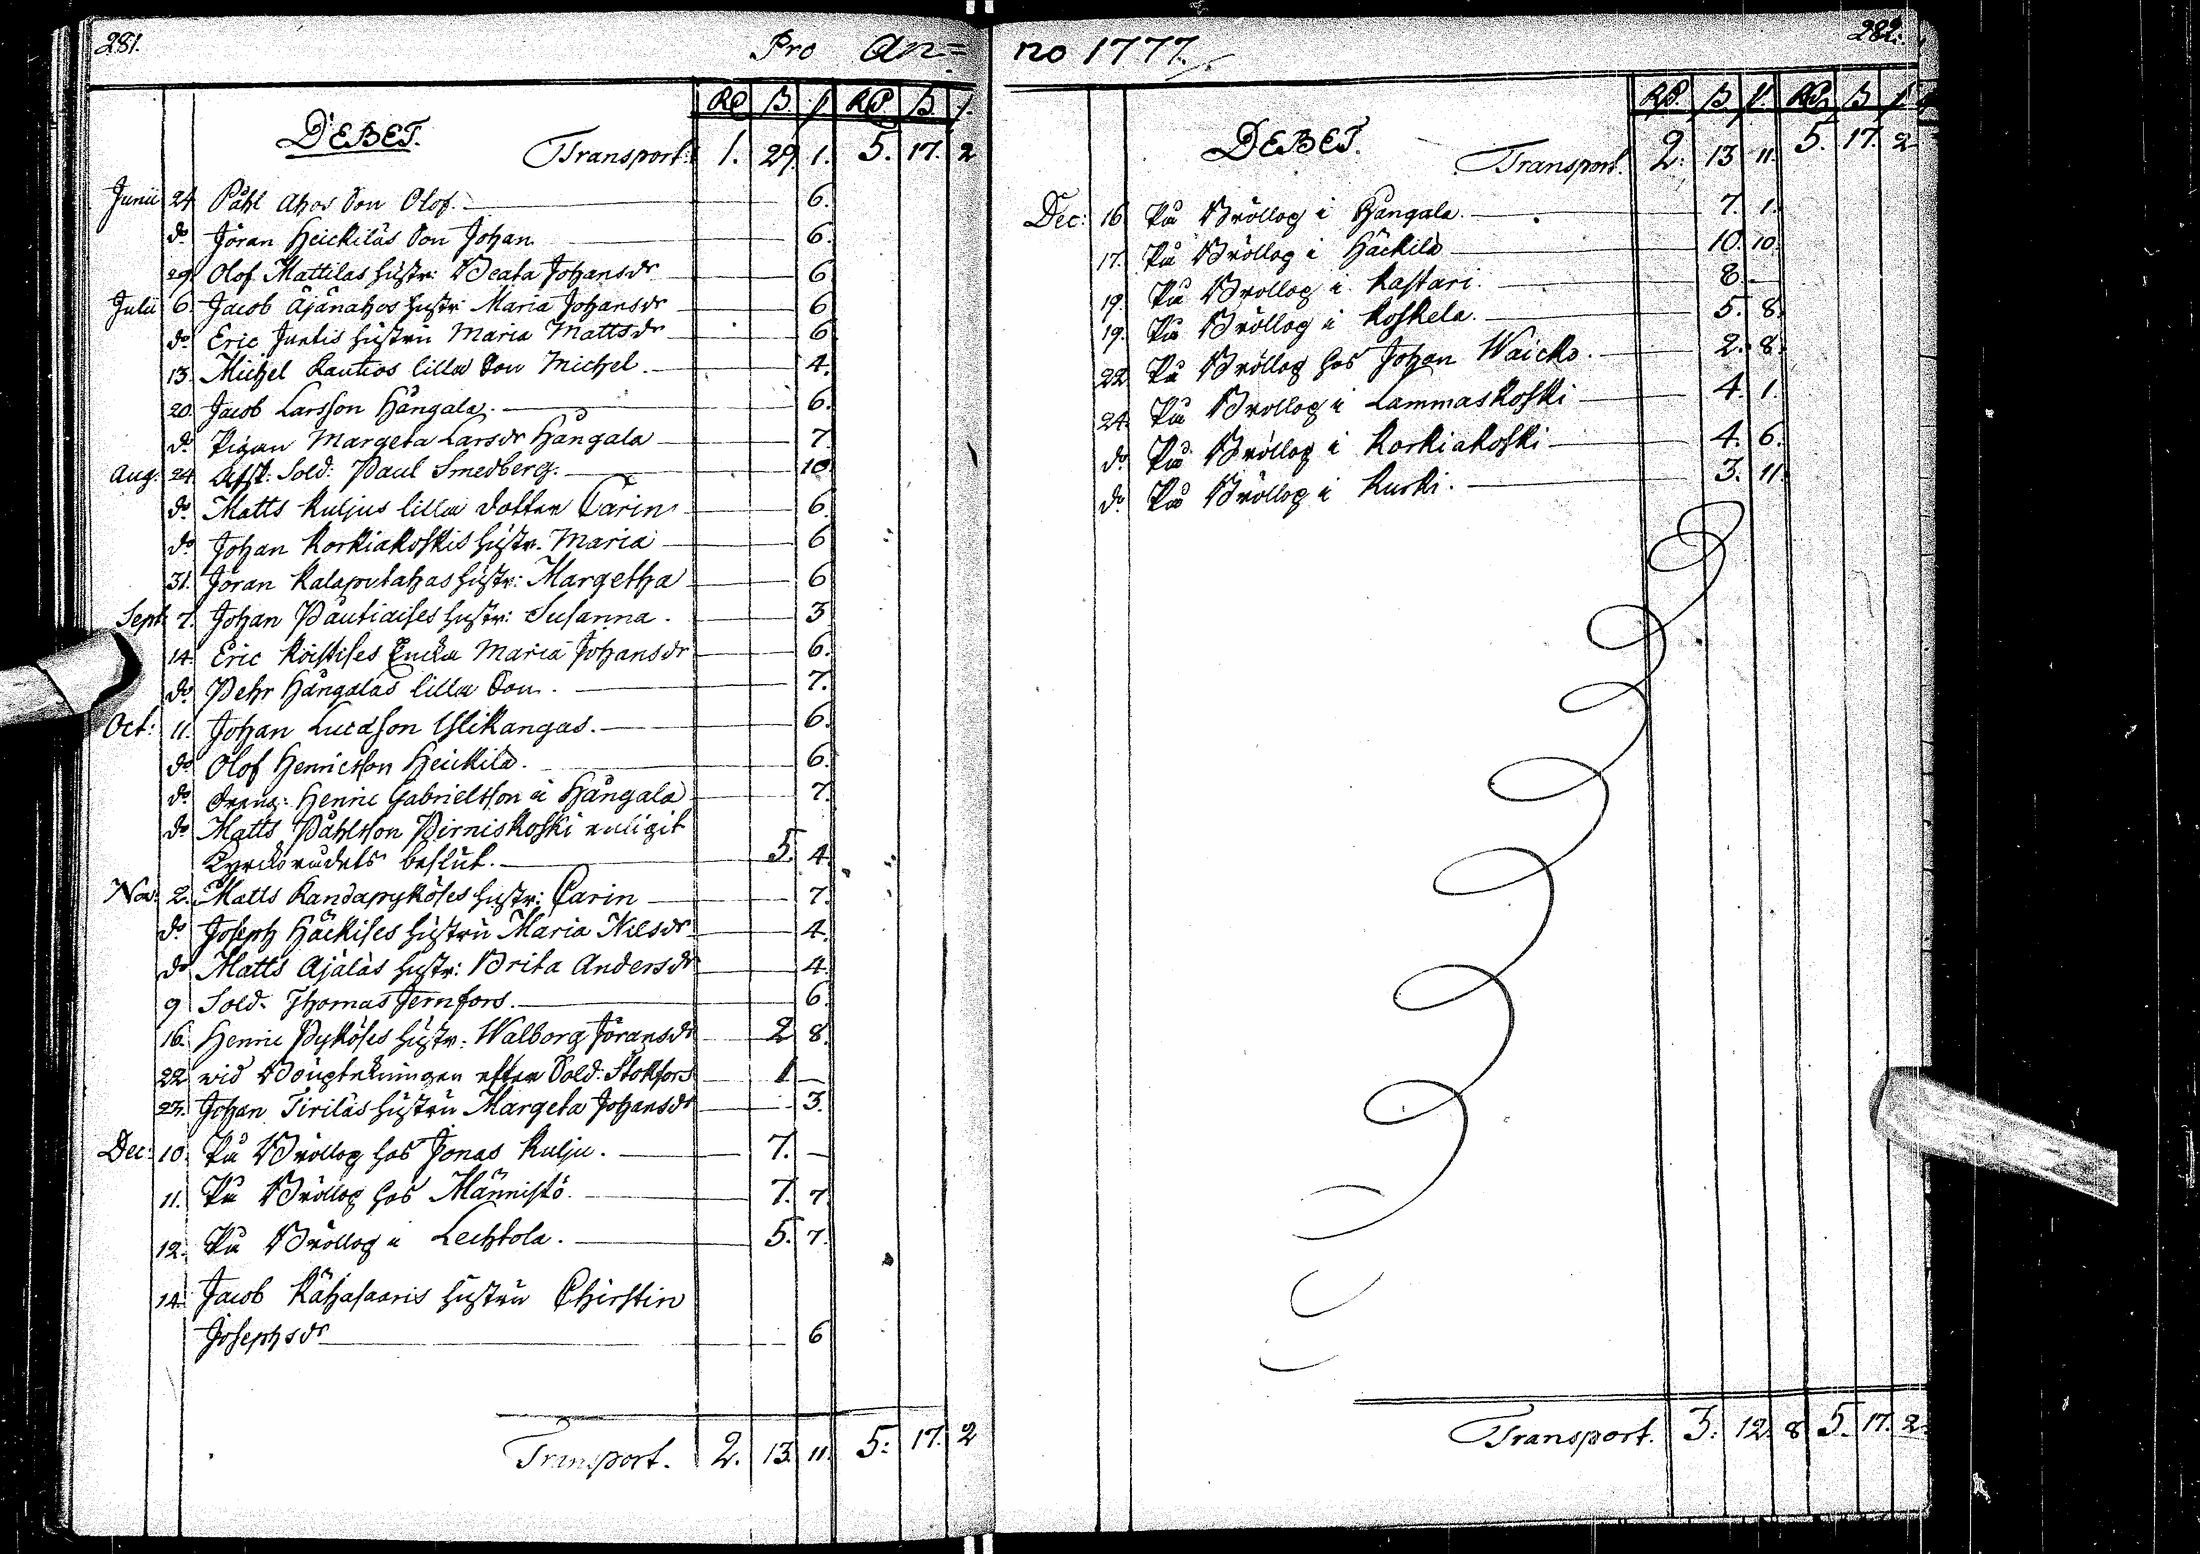 281.
Pro An=
DEBET. RD ß. f RD ß. f.
Transport: 1. 29. 1. 5. 17. 2
Junii 24 Påhl Ahos Son Olof. 6.
do Jöran Heickiläs Son Johan 6.
29 Olof Mattilas hustr: Beata Johansdr 6
Julii 6. Jacob Äjänahos hustr: Maria Johansdr 6
do Eric Juntis hustru Maria Mattsdr 6
13. Michel Kautios lilla Son Michel. 4.
20. Jacob Larsson Hångala. 6.
do Pigan Margeta Larsdr Hångala 7.
Aug: 24. Afsk: Sold: Paul Smedberg. 10
do Matts Kuljus lilla dotter Carin 6
do Johan Korkiakoskis hustr. Maria 6
31. Jöran Kalaputahas hustr: Margetha 6
Sept: 7. Johan Pautiaises hustr: Susanna. 3
14. Eric Köistises Enka Maria Johansdr 6.
do Pehr Hångalas lilla Son. 7.
Oct: 11. Johan Lucasson Ylikangas. 6.
do Olof Henricsson Heickilä. 6.
do dreng: Henric Gabrielsson i Hångala 7.
do Matts Påhlsson Pirniskoski enligit
Kyrckorådets beslut. 5. 4.
Nov: 2. Matts Kandapyköses hustr: Carin 7.
do Joseph Häckises hustru Maria Nilsdr 4.
do Matts Ajäläs hustr: Brita Andersdr 4.
9 Sold. Thomas Jernfors. 6.
16. Henric Pyköses hustr: Walborg Jöransdr 2 8.
22 wid Boupteckningen efter Sold: Stokfors 1 —
23. Johan Tiriläs hustru Margeta Johansdr 3.
Dec: 10. På Bröllop hos Jonas Kulju. 7. —
11. På Bröllop hos Männistö. 7. 7.
12. På Bröllop i Lechtola. 5. 7.
14. Jacob Kähäsaaris hustru Chirstin
Josephsdr 6
Transport. 2. 13. 11. 5: 17. 2
no 1777.
282.
DEBET. RD. ß f. RD ß f.
Transport. 2: 13 11. 5. 17. 2
Dec: 16 På Bröllop i Hångala. 7. 1.
17. På Bröllop i Häckilä 10. 10.
19. På Bröllop i Kastari. 8 —
19. På Bröllop i Koskela. 5. 8.
22 På Bröllop hos Johan Waicko. 2. 8.
24. På Bröllop i Lammaskoski 4. 1.
do På Bröllop i Korkiakoski 4. 6.
do På Bröllop i Kurki. 3. 11.
Transport. 3. 12. 8 5. 17. 2.